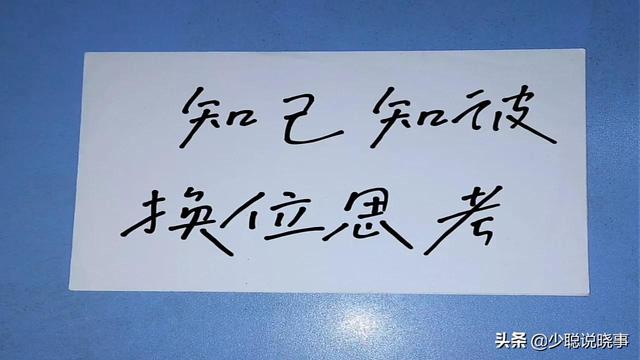 知己知被
换位思考
头条 @少聪说晓事